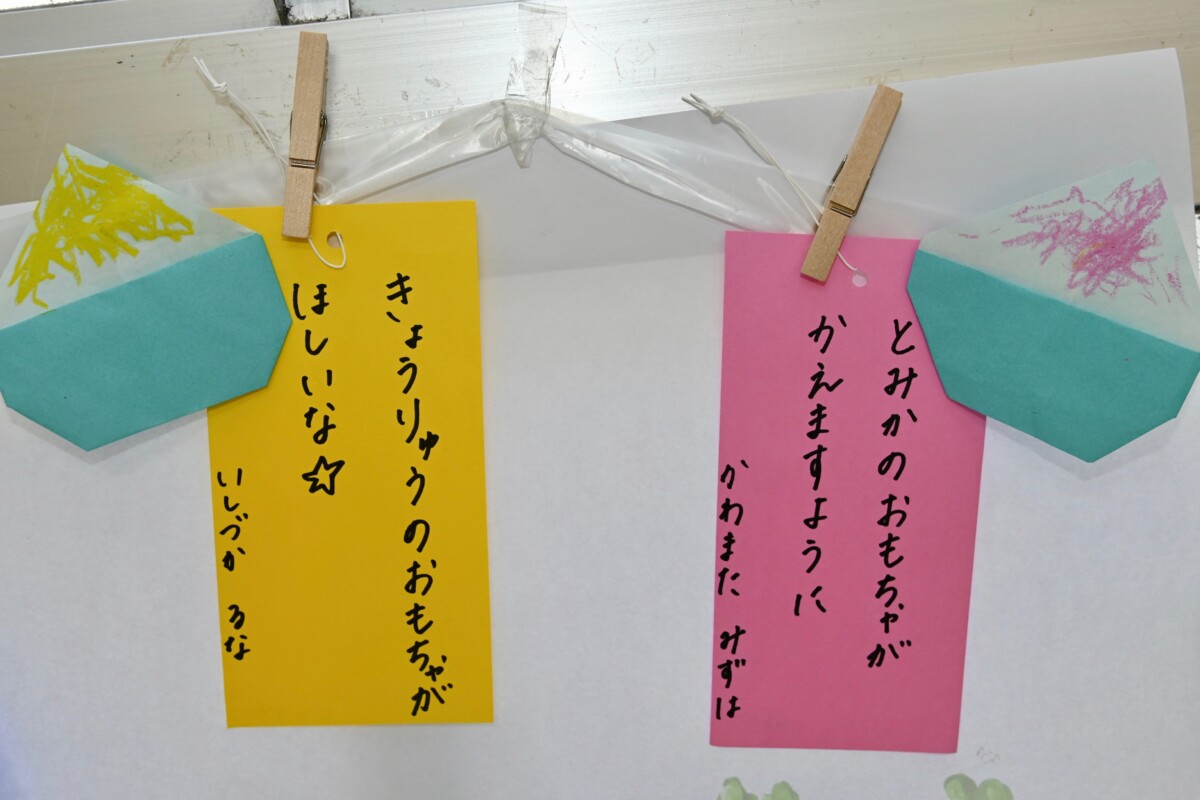 きょうりゅうのおもちゃが
ほしいな☆
いしづか るな
とみかのおもちゃが
かえますように
かわまた みずは